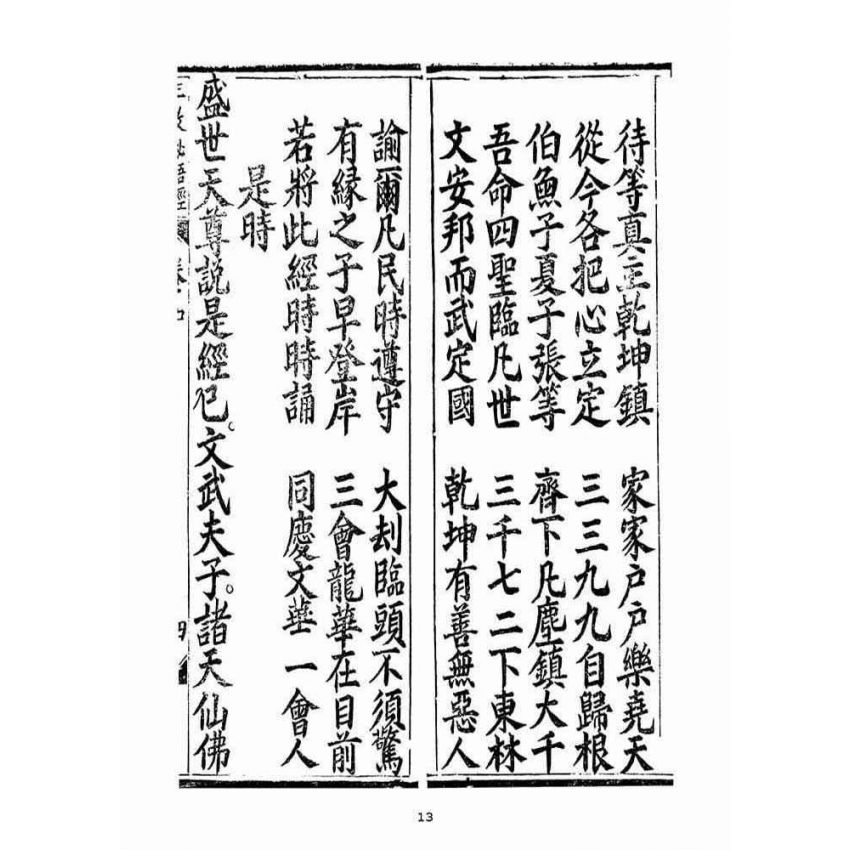 待等真主乾坤鎮　家家户户樂堯天
從今各把心立定　三三九九自歸根
伯魚子夏子張等　齊下凡塵鎮大千
吾命四聖臨凡世　三千七二下東林
文安邦而武定國　乾坤有善無惡人
諭爾凡民時遵守　大刦臨頭不須驚
有緣之子早登岸　三會龍華在目前
若將此經時時誦　同慶文華一會人
是時
盛世天尊説是經已。文武夫子。諸天仙佛
13